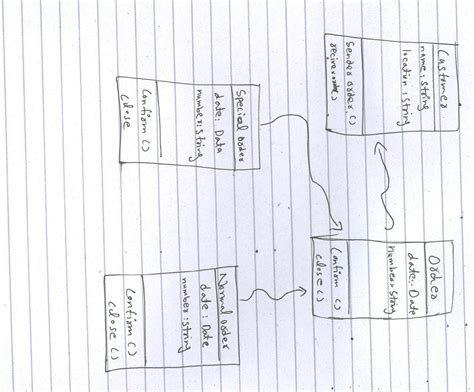 Customer
name: string
location: string
Sender order ()
Order
date: Date
number: String
Confirm ()
close ()
Special order
date: Data
number: string
Confirm ()
close
Normal order
date: Date
number: string
Confirm ()
close ()